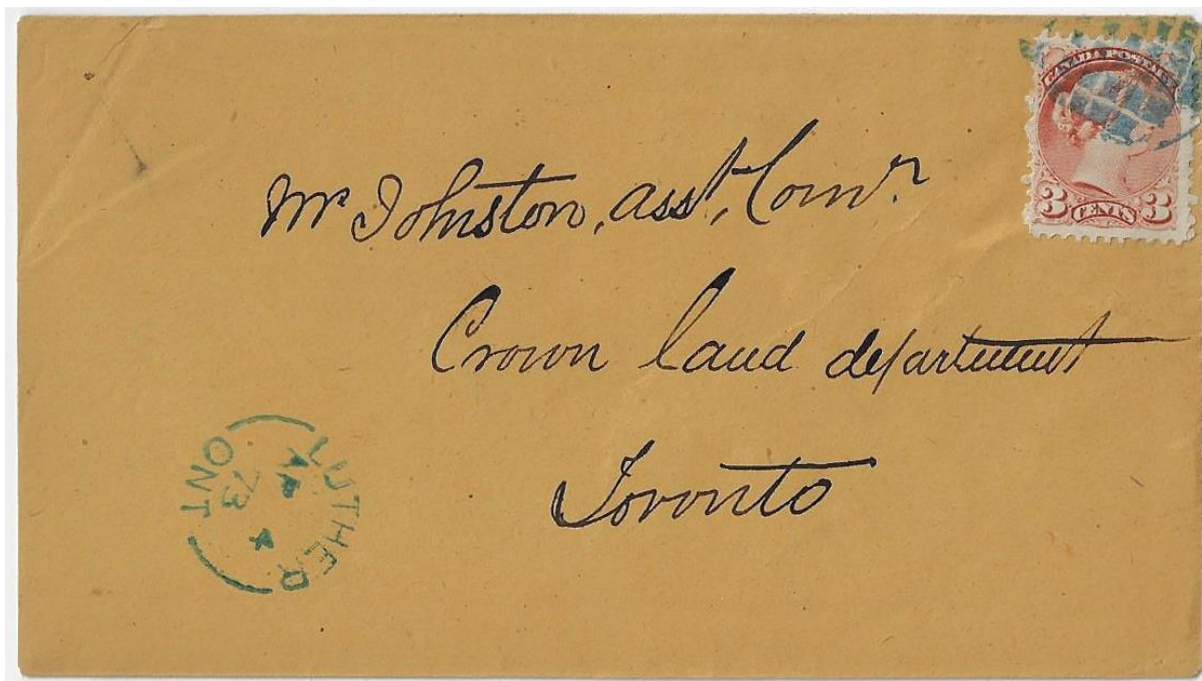 CANADA POSTAGE
3 CENTS 3
Mr Johnston, asst, Comr.
Crown land department
Toronto
LUTHER
ONT
73